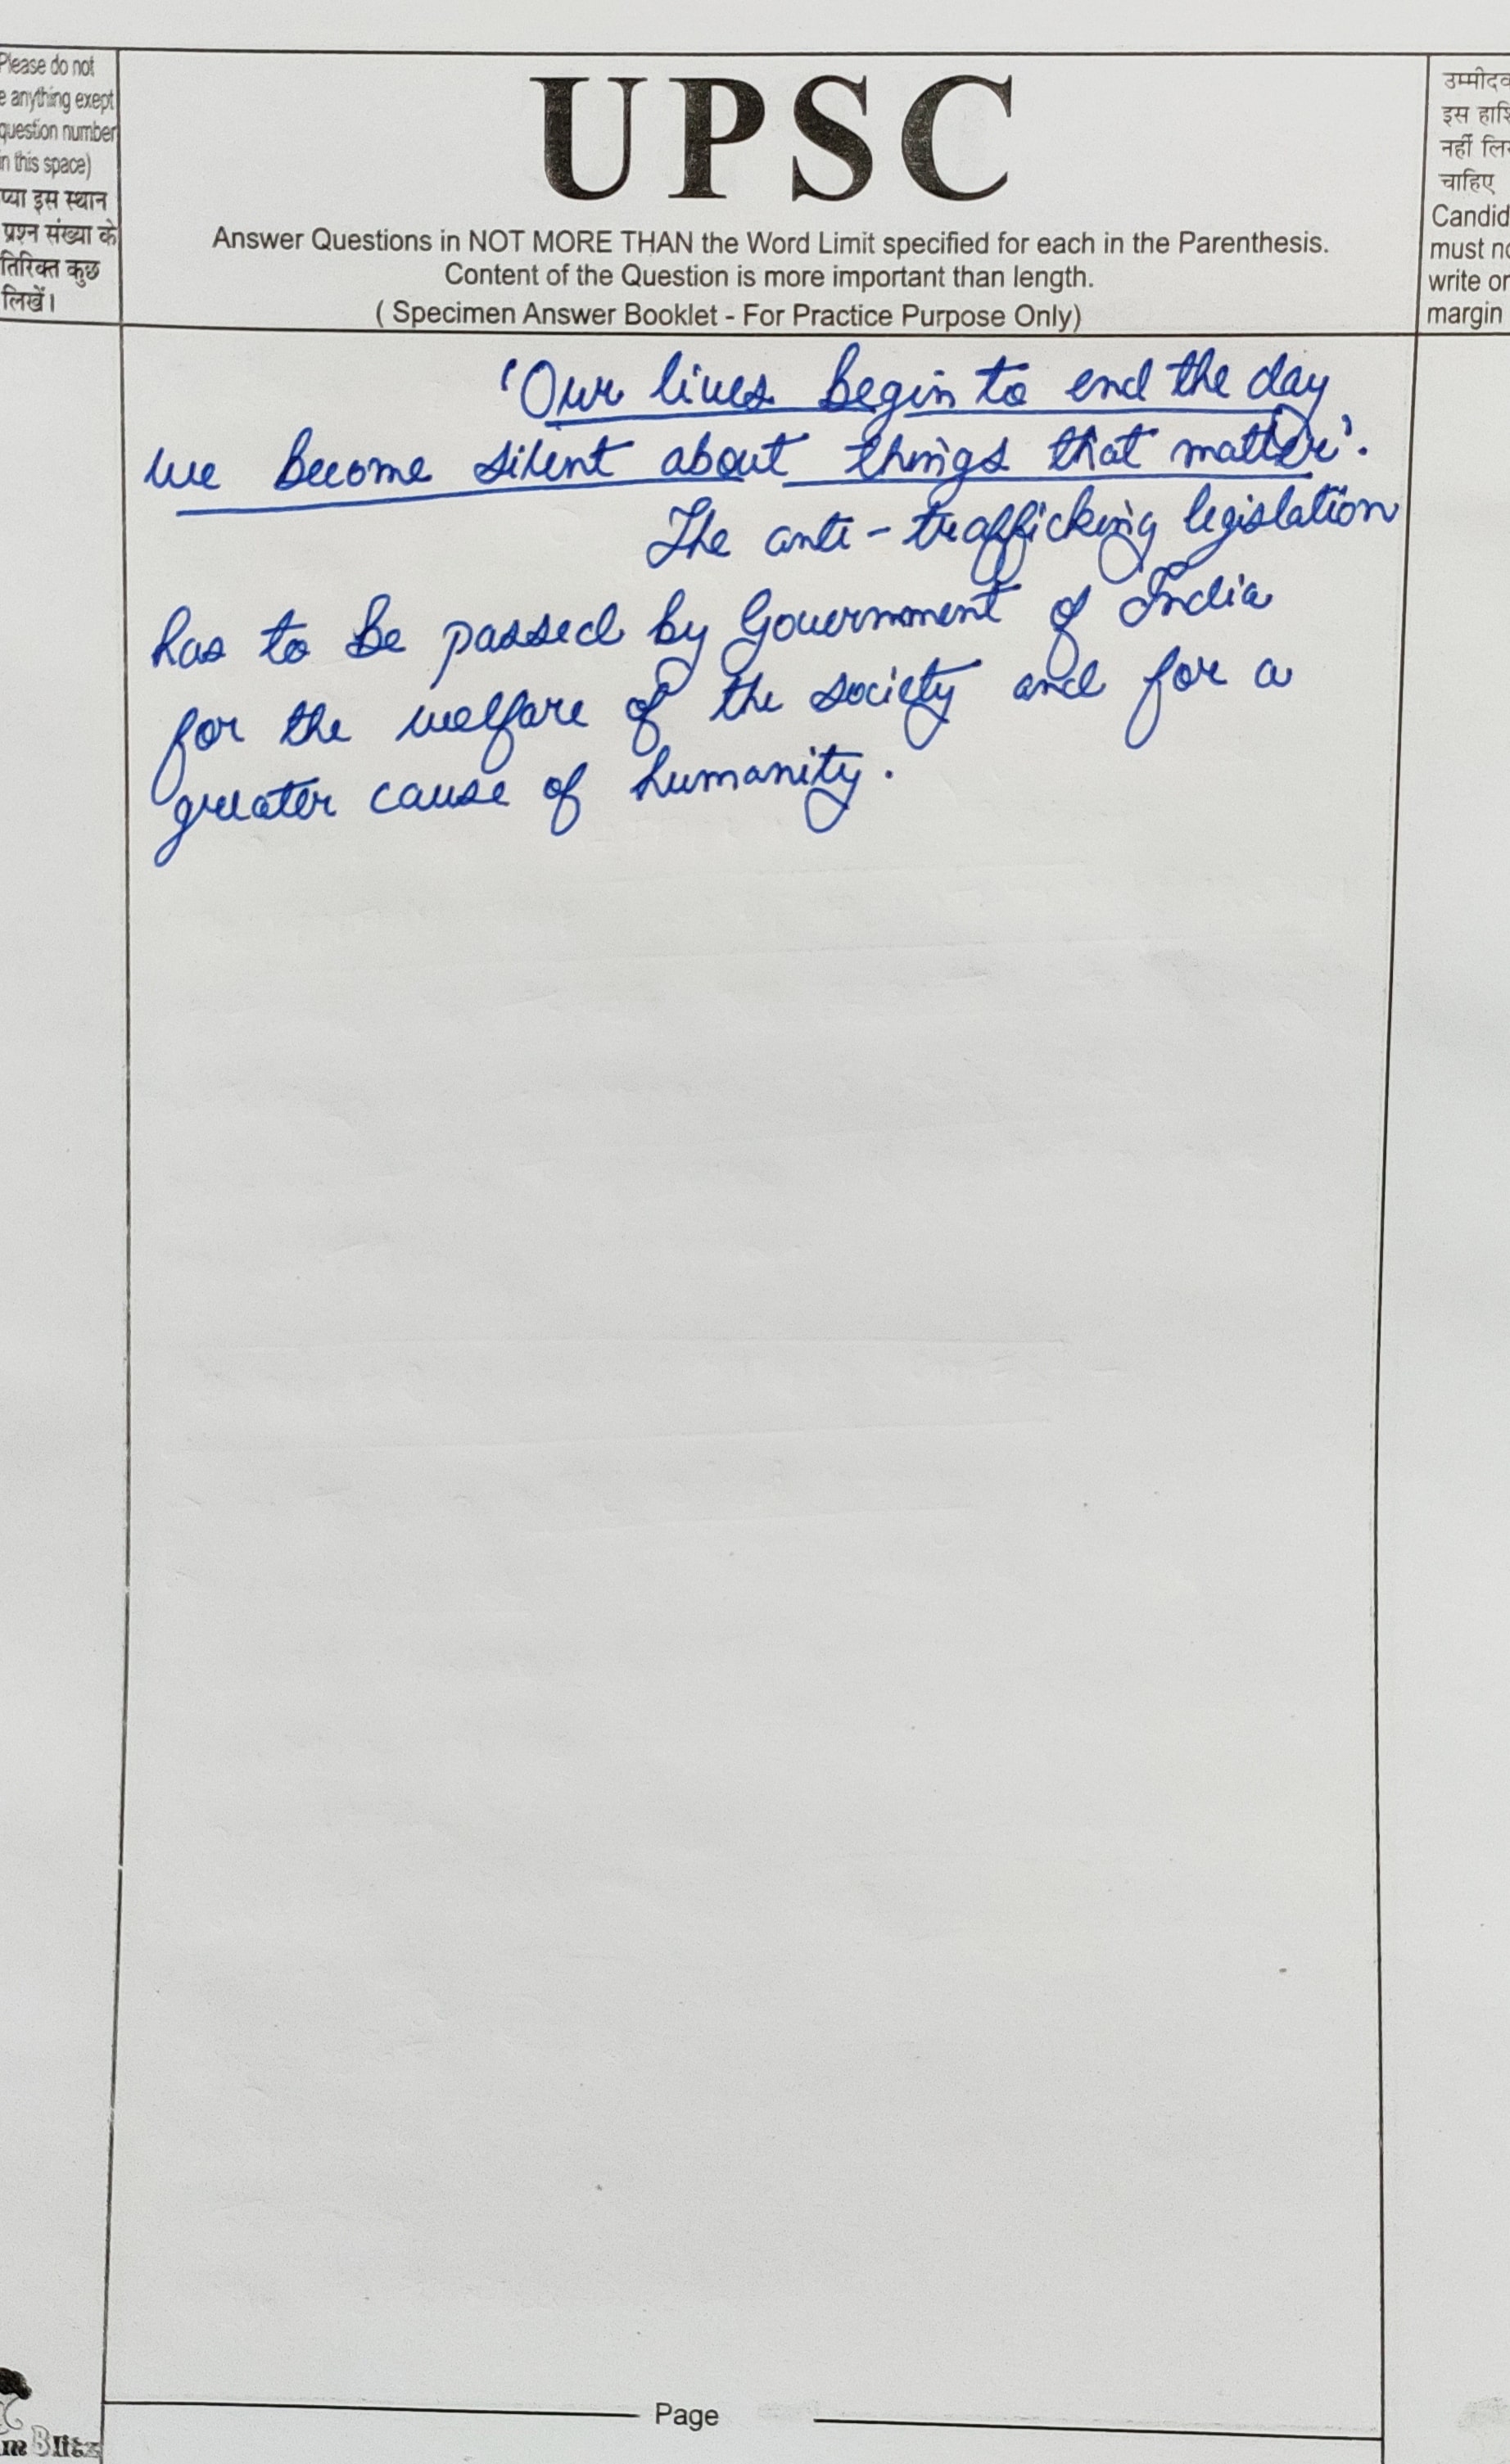 Please do not
e anything exept
question number
in this space)
प्या इस स्थान
प्रश्न संख्या के
तिरिक्त कुछ
लिखें।
UPSC
Answer Questions in NOT MORE THAN the Word Limit specified for each in the Parenthesis.
Content of the Question is more important than length.
( Specimen Answer Booklet - For Practice Purpose Only)
उम्मीदव
इस हाशि
नहीं लि
चाहिए
Candid
must no
write or
margin
'Our lives begin to end the day
we become silent about things that matter'.
The anti-trafficking legislation
has to be passed by Government of India
for the welfare of the society and for a
greater cause of humanity.
Page
m Blitz